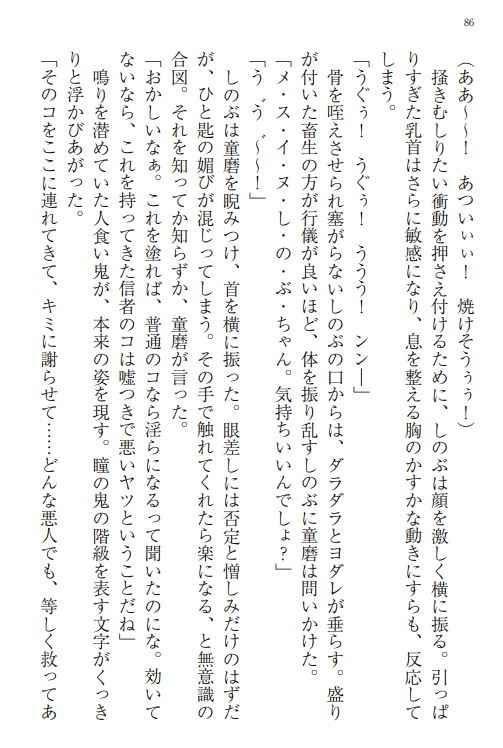 86
(ああ~~! あついぃぃ! 焼けそうぅぅ!)
掻きむしりたい衝動を押さえ付けるために、しのぶは顔を激しく横に振る。引っぱ
りすぎた乳首はさらに敏感になり、息を整える胸のかすかな動きにすらも、反応して
しまう。
「うぐぅ! うぐぅ! ううう! ンン―」
骨を咥えさせられ塞がらないしのぶの口からは、ダラダラとヨダレが垂らす。盛り
が付いた畜生の方が行儀が良いほど、体を振り乱すしのぶに童磨は問いかけた。
「メ・ス・イ・ヌ・し・の・ぶ・ちゃん。気持ちいいんでしょ?」
「う゛う゛~~!」
しのぶは童磨を睨みつけ、首を横に振った。眼差しには否定と憎しみだけのはずだ
が、ひと匙の媚びが混じってしまう。その手で触れてくれたら楽になる、と無意識の
合図。それを知ってか知らずか、童磨が言った。
「おかしいなぁ。これを塗れば、普通のコなら淫らになるって聞いたのにな。効いて
ないなら、これを持ってきた信者のコは嘘つきで悪いヤツということだね」
鳴りを潜めていた人食い鬼が、本来の姿を現す。瞳の鬼の階級を表す文字がくっき
りと浮かびあがった。
「そのコをここに連れてきて、キミに謝らせて……どんな悪人でも、等しく救ってあ